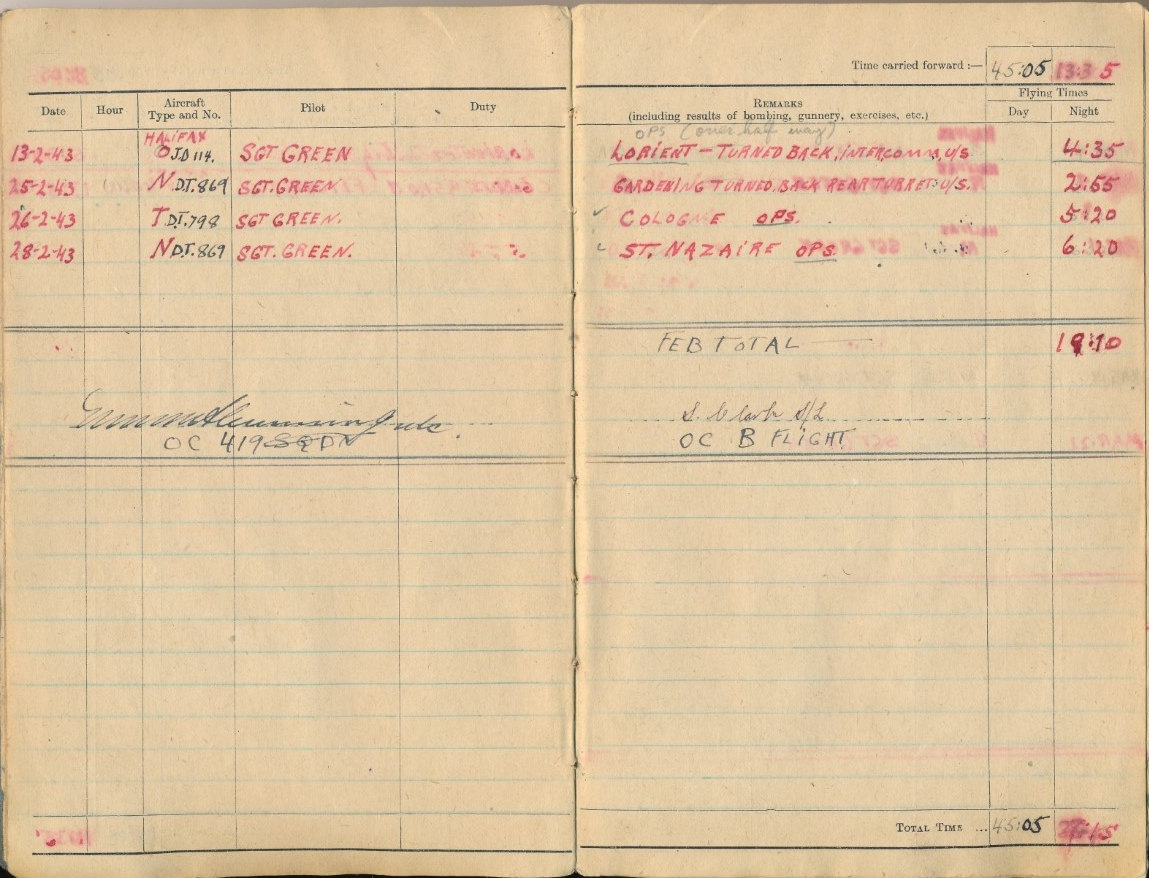 Time carried forward :— 45:05 13:35
Date Hour Aircraft Type and No. Pilot Duty REMARKS (including results of bombing, gunnery, exercises, etc.) Flying Times Day Night
HALIFAX OPS (over half way)
13-2-43 O JD 114. SGT GREEN LORIENT – TURNED BACK, INTERCOMM, U/S 4:35
25-2-43 N DT.869 SGT. GREEN. GARDENING TURNED BACK REAR TURRET U/S. 2:55
26-2-43 T DT.798 SGT GREEN. ✓ COLOGNE OPS. 5:20
28-2-43 N DT.869 SGT. GREEN. ST. NAZAIRE OPS 6:20
FEB TOTAL 19:10
S. Clark S/L
OC 419 SQDN OC B FLIGHT
TOTAL TIME ... 45:05